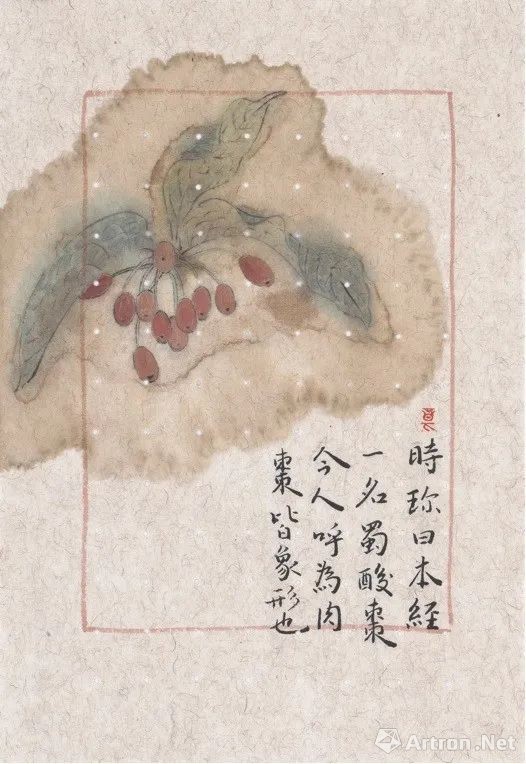 時珍曰本經
一名蜀酸棗
今人呼為肉
棗皆象形也
Artron.Net